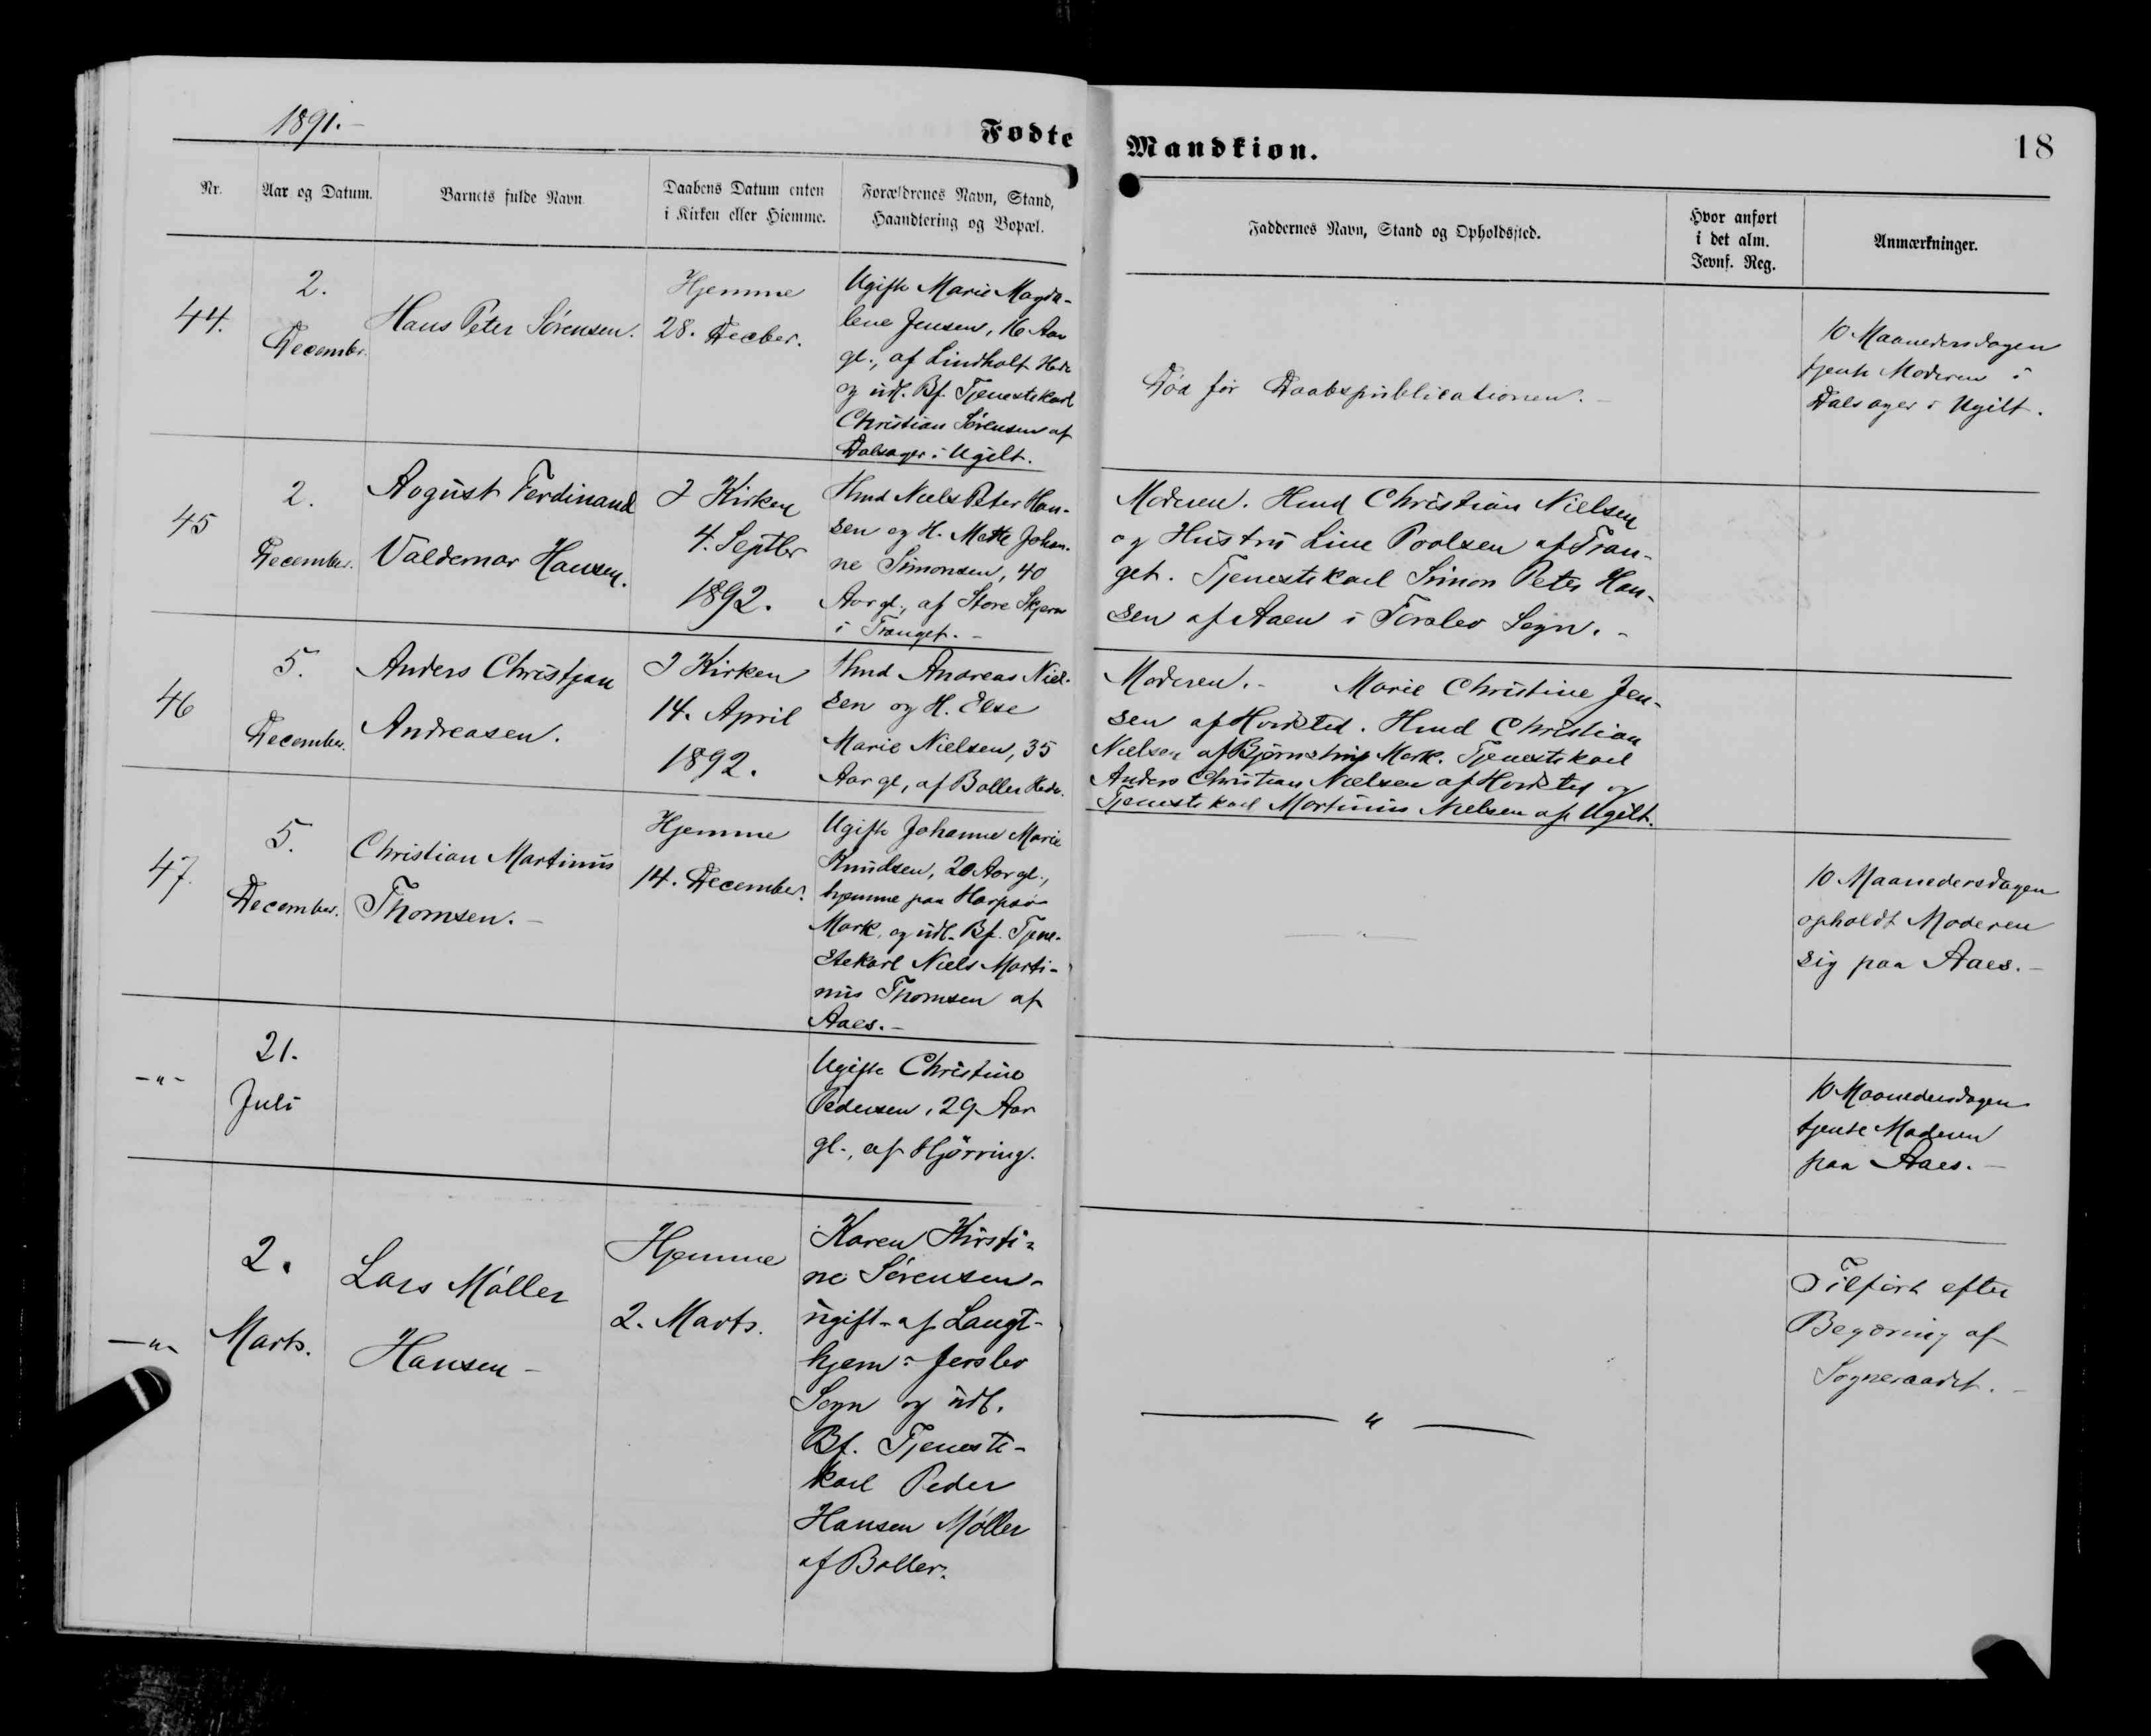 1891.-
Fødte
Mandkiøn.
18
Nr.
Aar og Datum.
Barnets fulde Navn
Daabens Datum enten
i Kirken eller Hiemme.
Forældrenes Navn, Stand,
Haandtering og Bopæl.
Faddernes Navn, Stand og Opholdssted.
Hvor anført
i det alm.
Jevnf. Reg.
Anmærkninger.
44.
2.
December.
Hans Peter Sörensen.
Hjemme
28. Decber.
Ugifte Marie Magda-
lene Jensen, 16 Aar
gl., af Lindholt Hede
og udl. Bf. Tjenestekarl
Christian Sörensen af
Dalsager i Ugilt.
Död för Daabspublicationen.-
10 Maanedersdagen
tjente Moderen i
Dalsager i Ugilt.
45
2.
December.
August Ferdinand
Valdemar Hansen.
I Kirken
4. Septbr
1892.
Hmd Niels Peter Han-
sen og H. Mette Johan-
ne Simonsen, 40
Aar gl., af Store Skjern
i Tranget.-
Moderen. Hmd Christian Nielsen
og Hustru Line Poulsen af Tran-
get. Tjenestekarl Simon Peter Han-
sen af Aaen i Torslev Sogn.-
46
5.
December.
Anders Christjan
Andreasen.
I Kirken
14. April
1892.
Hmd Andreas Niel-
sen og H. Else
Marie Nielsen, 35
Aar gl, af Boller Hede.
Moderen.- Marie Christine Jen-
sen af Hvidsted. Hmd Christian
Nielsen af Bjørnstrup Mark. Tjenestekarl
Anders Christian Nielsen af Hvidsted og
Tjenestekarl Martinus Nielsen af Ugilt.
47.
5.
December.
Christian Martinus
Thomsen.-
Hjemme
14. December.
Ugifte Johanne Marie
Knudsen, 20 Aar gl.,
hjemme paa
Mark, og udl. Bf. Tjene-
stekarl Niels Marti-
nus Thomsen af
Aaes.-
— " —
10 Maanedersdagen
opholdt Moderen
sig paa Aaes.-
-"-
21.
Juli
Ugifte Christine
Pedersen, 29 Aar
gl., af Hjörring.
10 Maanedersdagen
tjente Moderen
paa Aaes.-
-"-
2.
Marts.
Lars Möller
Hansen-
Hjemme
2. Marts.
Karen Kirsti-
ne Sörensen-
ugift- af Langt-
hjem i Jerslev
Sogn og udl.
Bf. Tjeneste-
karl Peder
Hansen Möller
af Boller.
— " —
Tilført efter
Begæring af
Sogneraadet.-